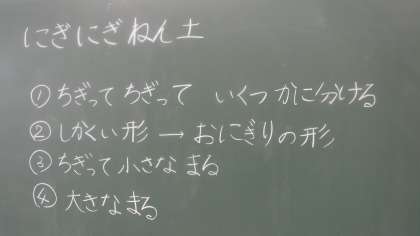 にぎにぎねん土
①ちぎってちぎって いくつかに分ける
②しかくい形→おにぎりの形
③ちぎって小さなまる
④大きなまる